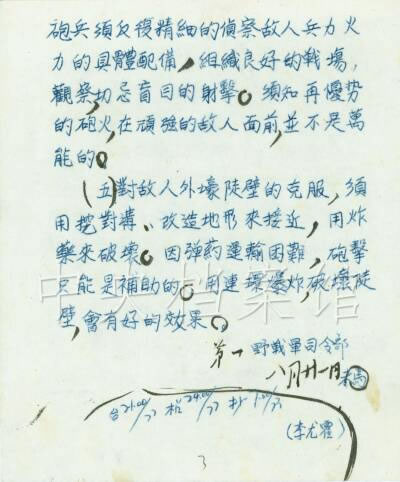 砲兵須反復精細的偵察敵人兵力火
力的具體配備，組織良好的戰場，
觀察，切忌盲目的射擊。須知再優势
的砲火，在頑強的敵人面前，並不是萬
能的。
(五)對敵人外壕陡壁的克服，須
用挖對溝、改造地形來接近，用炸
藥來破壞。因弹药運輸困難，砲擊
只能是補助的。用連環爆炸，破壞陡
壁，會有好的效果。
中央档案馆
第一野戰軍司令部
八月廿一日
3